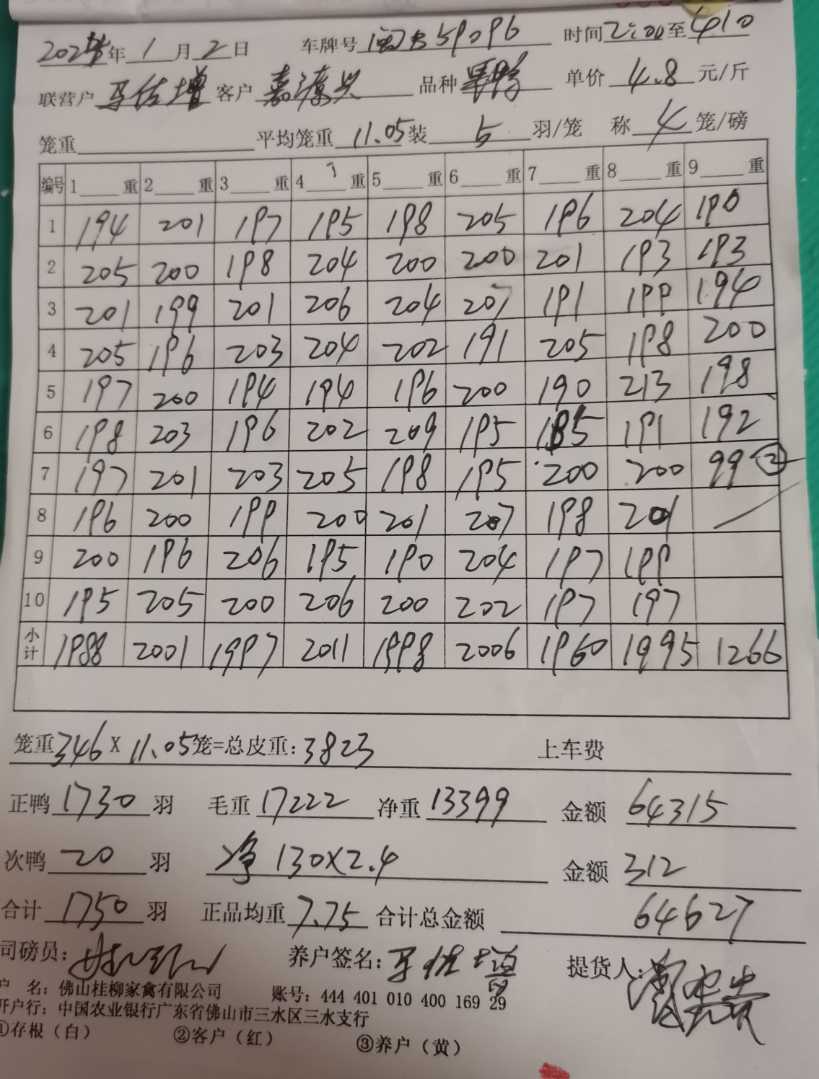 202 年 1 月 2 日 车牌号 59096 时间 2:00 至 4:10
联营户 马佐增 客户 嘉源兴 品种 单价 4.8 元/斤
笼重 平均笼重 11.05 装 5 羽/笼 称 4 笼/磅
编号 1 重 2 重 3 重 4 重 5 重 6 重 7 重 8 重 9 重
1 194 201 197 195 198 205 196 204 190
2 205 200 198 204 200 200 201 193 193
3 201 199 201 206 204 207 191 199 194
4 205 196 203 204 202 191 205 198 200
5 197 200 194 194 196 200 190 213 198
6 198 203 196 202 209 195 185 191 192
7 197 201 203 205 198 195 200 200 99 ②
8 196 200 199 200 201 207 198 201
9 200 196 206 195 190 204 197 199
10 195 205 200 206 200 202 197 197
小计 1988 2001 1997 2011 1998 2006 1960 1995 1266
笼重 346 X 11.05 笼=总皮重: 3823 上车费
正鸭 1730 羽 毛重 17222 净重 13399 金额 64315
次鸭 20 羽 净 130X2.4 金额 312
合计 1750 羽 正品均重 7.75 合计总金额 64627
司磅员: 养户签名: 马佐增 提货人:
户 名: 佛山桂柳家禽有限公司 账号: 444 401 010 400 169 29
开户行: 中国农业银行广东省佛山市三水区三水支行
①存根(白) ②客户(红) ③养户(黄)